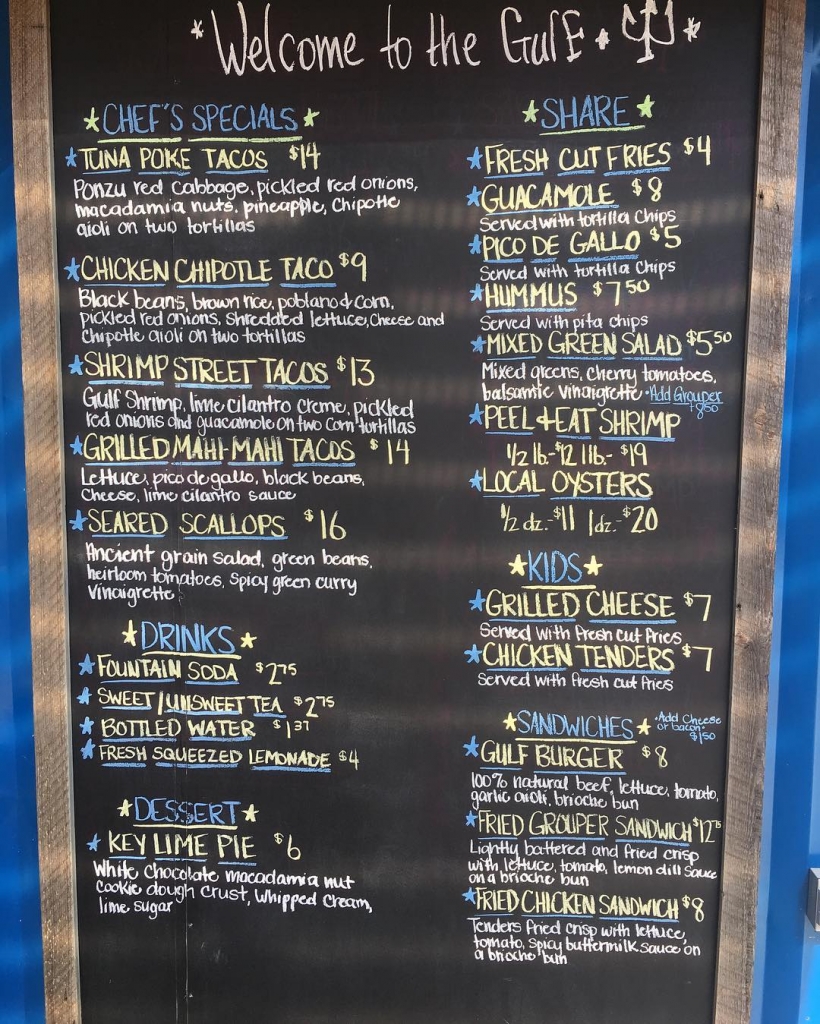 *Welcome to the Gulf*
CHEF'S SPECIALS
TUNA POKE TACOS $14
Ponzu red cabbage, pickled red onions,
macadamia nuts, pineapple, Chipotle
aioli on two tortillas
CHICKEN CHIPOTLE TACO $9
Black beans, brown rice, poblano & corn,
pickled red onions, shredded lettuce, cheese and
Chipotle aioli on two tortillas
SHRIMP STREET TACOS $13
Gulf Shrimp, lime cilantro creme, pickled
red onions and guacamole on two corn tortillas
GRILLED MAHI-MAHI TACOS $14
Lettuce, pico de gallo, black beans,
cheese, lime cilantro sauce
SEARED SCALLOPS $16
Ancient grain salad, green beans,
heirloom tomatoes, spicy green curry
vinaigrette
DRINKS
FOUNTAIN SODA $2.75
SWEET/UNSWEET TEA $2.75
BOTTLED WATER $1.37
FRESH SQUEEZED LEMONADE $4
DESSERT
KEY LIME PIE $6
White chocolate macadamia nut
cookie dough crust, whipped cream,
lime sugar
SHARE
FRESH CUT FRIES $4
GUACAMOLE $8
Served with tortilla chips
PICO DE GALLO $5
Served with tortilla chips
HUMMUS $7.50
Served with pita chips
MIXED GREEN SALAD $5.50
Mixed greens, cherry tomatoes,
balsamic vinaigrette • Add Grouper
+8.50
PEEL & EAT SHRIMP
1/2 lb.-$12 1 lb.-$19
LOCAL OYSTERS
1/2 dz.-$11 1dz.-$20
KIDS
GRILLED CHEESE $7
Served with fresh cut fries
CHICKEN TENDERS $7
Served with fresh cut fries
SANDWICHES •Add Cheese
or bacon•
$1.50
GULF BURGER $8
100% natural beef, lettuce, tomato,
garlic aioli, brioche bun
FRIED GROUPER SANDWICH $12.75
Lightly battered and fried crisp
with lettuce, tomato, lemon dill sauce
on a brioche bun
FRIED CHICKEN SANDWICH $8
Tenders fried crisp with lettuce,
tomato, spicy buttermilk sauce on
a brioche bun